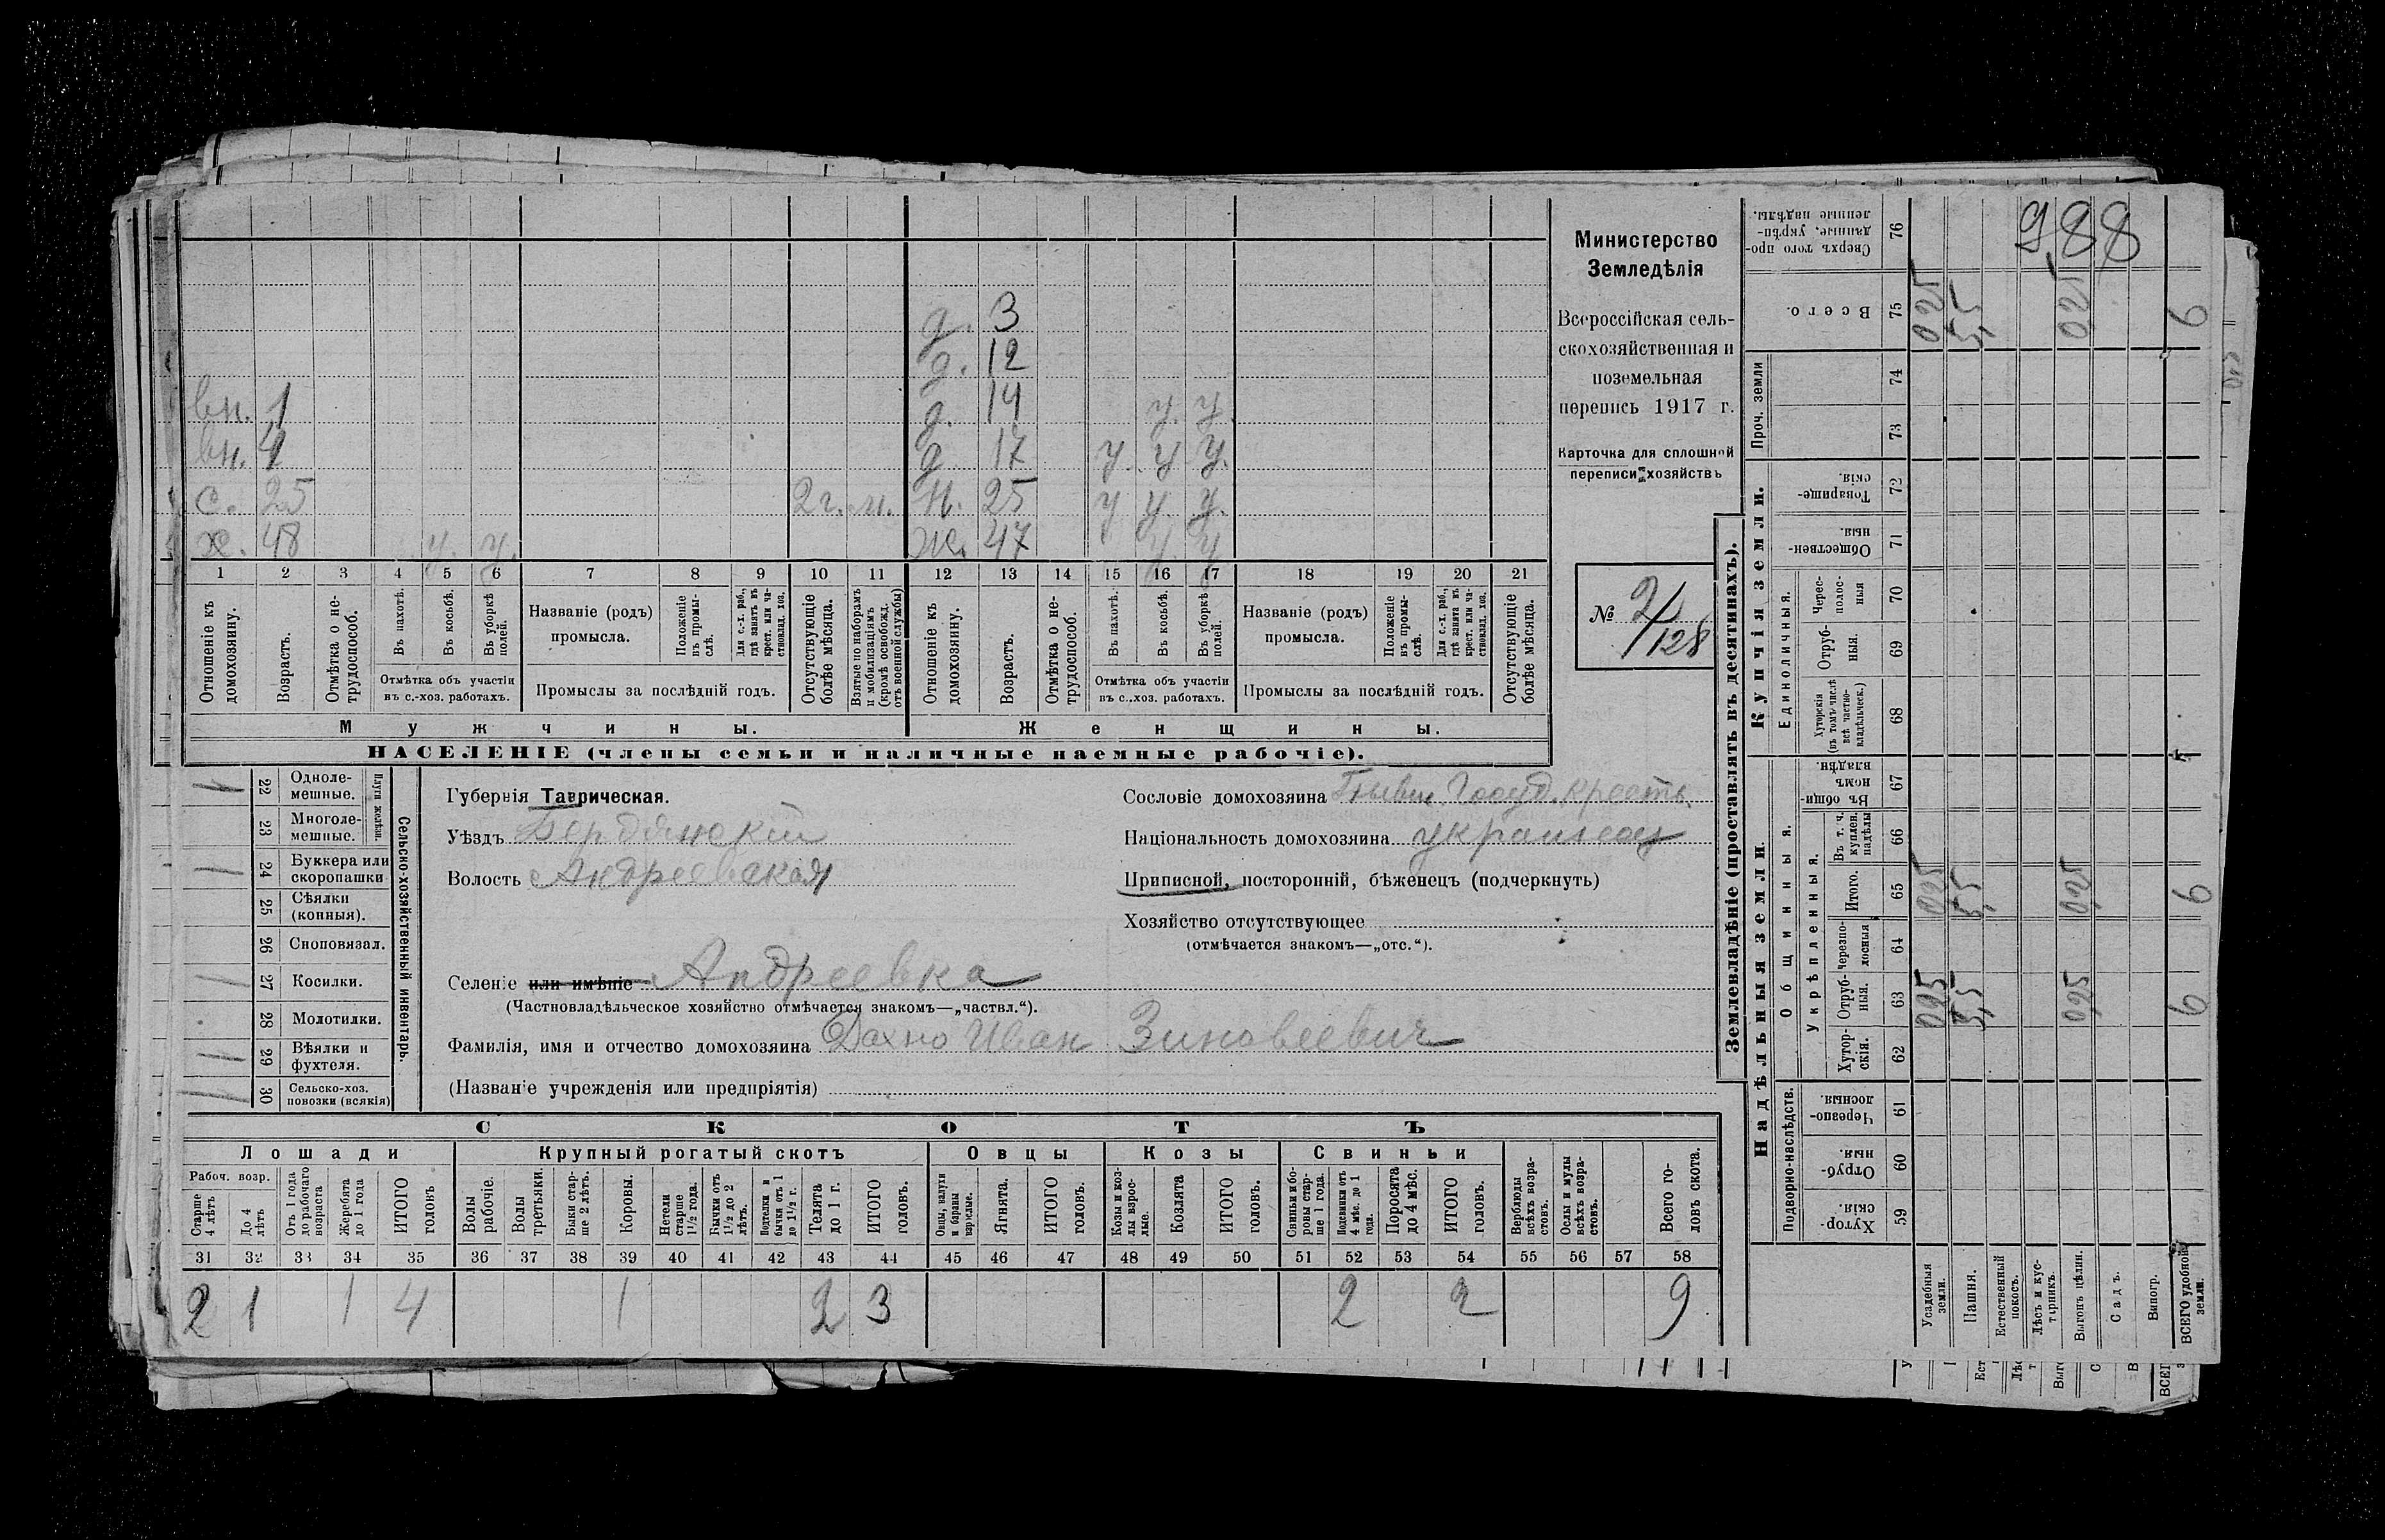 Министерство
Земледѣлія
Всероссійская сель-
скохозяйственная и
поземельная
перепись 1917 г.
Карточка для сплошной
переписи хозяйствъ
№ 2/128
988
д. 3
д. 12
вн. 1 д. 14 у. у.
вн. 4 д. 17 у. у. у.
с. 25 2 г. м. н. 25 у у. у.
х. 48 у. у. ж. 47 у. у
1 2 3 4 5 6 7 8 9 10 11 12 13 14 15 16 17 18 19 20 21
Отношеніе къ домохозяину.
Возрастъ.
Отмѣтка о не-трудоспособ.
Въ пахотѣ.
Въ косьбѣ.
Въ уборкѣ полей.
Отмѣтка объ участіи
въ с.-хоз. работахъ.
Названіе (родъ)
промысла.
Положеніе въ промы-слѣ.
Для с.-х. раб., гдѣ занятъ въ крест. или ча-стновлад. хоз.
Промыслы за послѣдній годъ.
Отсутствующіе болѣе мѣсяца.
Взятые по наборамъ и мобилизаціямъ (кромѣ освобожд. отъ военной службы)
Отношеніе къ домохозяину.
Возрастъ.
Отмѣтка о не-трудоспособ.
Въ пахотѣ.
Въ косьбѣ.
Въ уборкѣ полей.
Отмѣтка объ участіи
въ с.-хоз. работахъ.
Названіе (родъ)
промысла.
Положеніе въ промы-слѣ.
Для с.-х. раб., гдѣ занята въ крест. или ча-стновлад. хоз.
Промыслы за послѣдній годъ.
Отсутствующіе болѣе мѣсяца.
Мужчины. Женщины.
НАСЕЛЕНІЕ (члены семьи и наличные наемные рабочіе).
Сельско-хозяйственный инвентарь.
Плуги желѣзн.
1 22 Одноле-мешные.
23 Многоле-мешные.
1 24 Буккера или скоропашки
25 Сѣялки (конныя).
26 Сноповязал.
1 27 Косилки.
28 Молотилки.
1 29 Вѣялки и фухтеля.
30 Сельско-хоз. повозки (всякія)
Губернія Таврическая.
Уѣздъ Бердянскій
Волость Андреевская
Селеніе или имѣніе Андреевка
(Частновладѣльческое хозяйство отмѣчается знакомъ—„частвл.“).
Фамилія, имя и отчество домохозяина Дахно Иван Зиновеевич
(Названіе учрежденія или предпріятія)
Сословіе домохозяина Бывш. Госуд. крестъ.
Національность домохозяина украинец
Приписной, посторонній, бѣженецъ (подчеркнуть)
Хозяйство отсутствующее
(отмѣчается знакомъ—„отс.“).
СКОТЪ
Лошади Крупный рогатый скотъ Овцы Козы Свиньи
Рабоч. возр.
Старше 4 лѣтъ
До 4 лѣтъ
Отъ 1 года до рабочаго возраста
Жеребята до 1 года
ИТОГО головъ
Волы рабочіе.
Волы третьяки.
Быки стар-ше 2 лѣтъ.
Коровы.
Нетели старше 1½ года.
Бычки отъ 1½ до 2 лѣтъ.
Подтелки и бычки отъ 1 до 1½ г.
Телята до 1 г.
ИТОГО головъ.
Овцы, валухи и бараны взрослые.
Ягнята.
ИТОГО головъ.
Козы и коз-лы взрос-лые.
Козлята
ИТОГО головъ.
Свиньи и бо-ровы стар-ше 1 года.
Подсвинки отъ 4 мѣс. до 1 года.
Поросята до 4 мѣс.
ИТОГО головъ.
Верблюды всѣхъ возра-стовъ.
Ослы и мулы всѣхъ возра-стовъ.
Всего го-ловъ скота.
31 32 33 34 35 36 37 38 39 40 41 42 43 44 45 46 47 48 49 50 51 52 53 54 55 56 57 58
2 1 1 4 1 2 3 2 2 9
Землевладѣніе (проставлять въ десятинахъ).
Надѣльныя земли.
Купчія земли.
Проч. земли
Подворно-наслѣдств.
Общинныя.
Укрѣпленныя.
Единоличныя.
Сверхъ того про-данные, укрѣп-ленные надѣлы. 76
Всего. 75 0,25 5,5 0,25 6
74
73
Товарище-скія. 72
Обществен-ныя. 71
Черес-полос-ныя 70
Отруб-ныя. 69
Хуторскія (въ томъ числѣ всѣ частно-владѣльческ.) 68
Въ общин-номъ владѣн. 67
Въ т. ч. куплен. надѣлы 66
Итого. 65 0,25 5,5 0,25 6
Черезпо-лосныя 64
Отруб-ныя. 63 0,25 5,5 0,25 6
Хутор-скія. 62
Черезпо-лосныя. 61
Отруб-ныя. 60
Хутор-скія. 59
Усадебныя земли.
Пашня.
Естественный покосъ.
Лѣсъ и кус-тарникъ.
Выгонъ цѣлин.
Садъ.
Виногр.
ВСЕГО удобной земли.